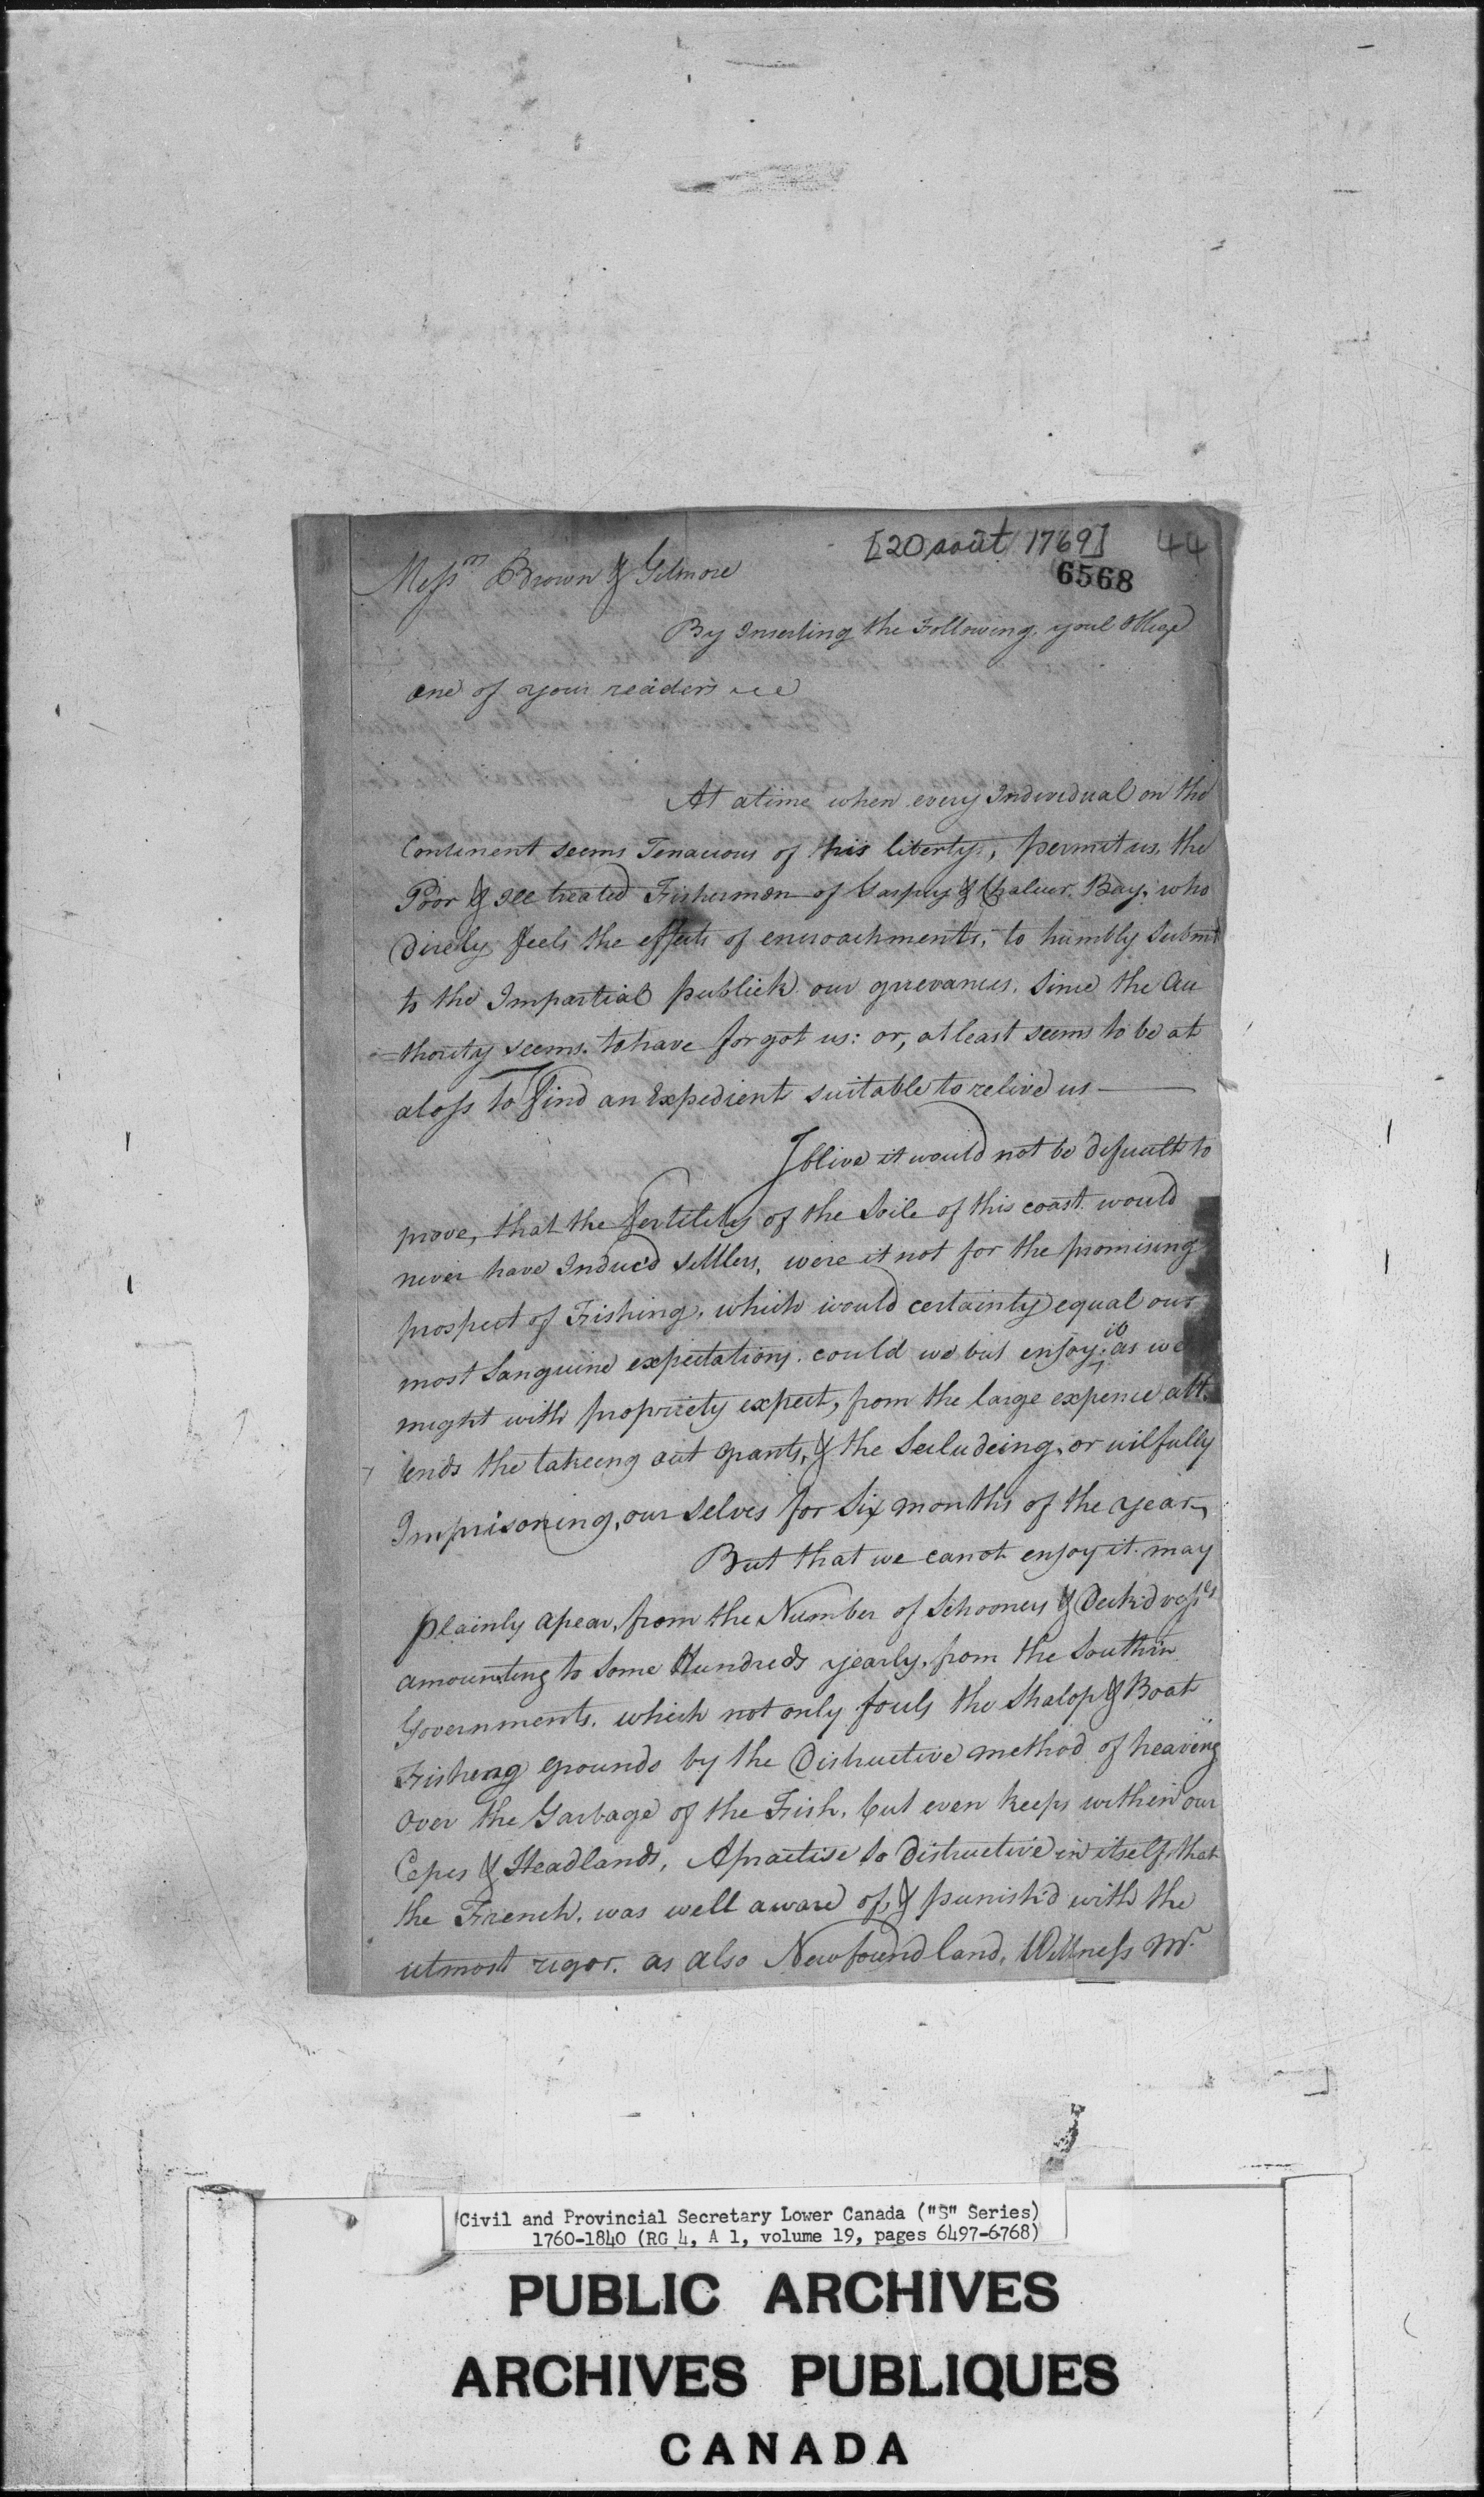 [20 août 1769] 44
6568
Messrs Brown & Gilmore
By Inserting the Following, youl oblige
one of your readers &c
At atime when every Individual on the
Continent seems Tenacious of his liberty, permit us, the
Poor & Ill treated Fishermen of Gaspey & Chaleur Bay, who
direly feels the effects of encroachments, to humbly submit
to the Impartial publick our grievances, Since the Au
=thority seems to have forgot us: or, at least seems to be at
aloss To Find an Expedient suitable to relive us —
I blive it would not be dificult to
prove, that the Fertility of the Soile of this coast would
never have Induc'd settlers, were it not for the promising
prospect of Fishing, which would certainty equal our
most Sanguine expectations. could we but enjoy it as we
might with propriety expect, from the large expence att
tends the takeing out grants, & the Secludeing, or wilfully
Imprisoning, our selves for Six months of the year,
But that we canot enjoy it may
plainly apear, from the Number of Schooners & Deck'd vessls
amounting to Some Hundreds yearly, from the Southrn
Governments, which not only fouls the Shalop & Boat
Fisheng grounds by the Distructive method of heaving
over the Garbage of the Fish, but even keeps within our
Capes & Headlands, Apractise so distructive in itself, that
the French, was well aware of, & punish'd with the
utmost rigor. as also Newfoundland, Wittness Mr
Civil and Provincial Secretary Lower Canada ("S" Series)
1760-1840 (RG 4, A 1, volume 19, pages 6497-6768)
PUBLIC ARCHIVES
ARCHIVES PUBLIQUES
CANADA